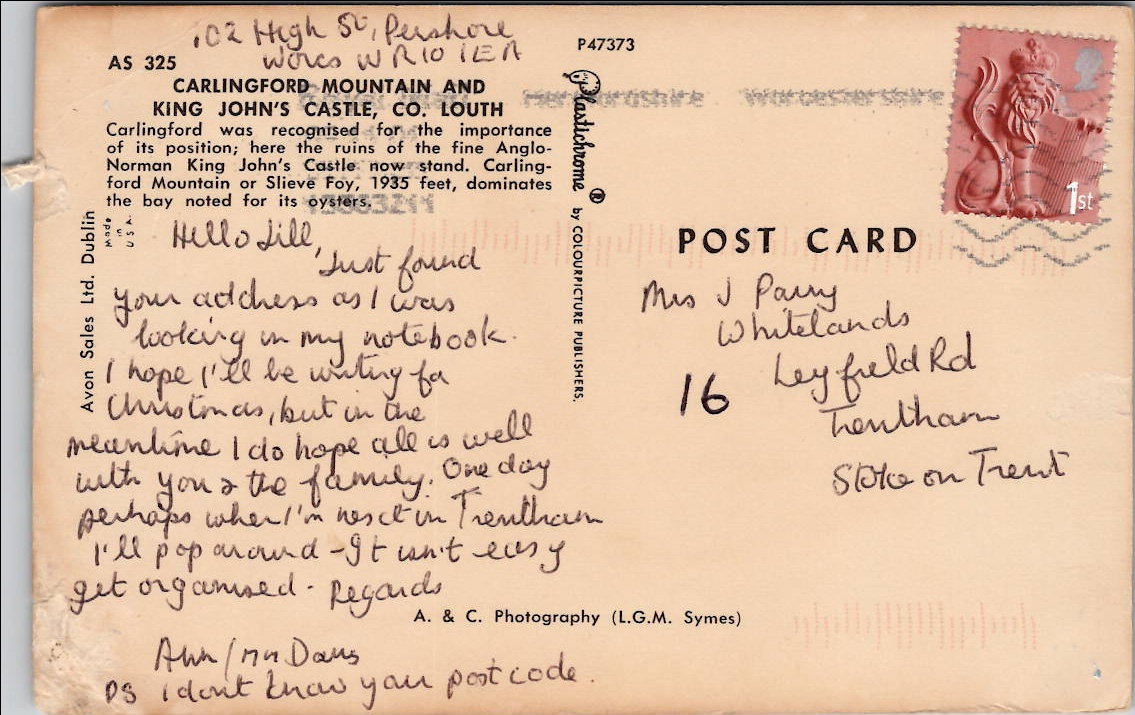 102 High St, Pershore
Worcs WR10 1EA
AS 325
CARLINGFORD MOUNTAIN AND
KING JOHN'S CASTLE, CO. LOUTH
Carlingford was recognised for the importance
of its position; here the ruins of the fine Anglo-
Norman King John's Castle now stand. Carling-
ford Mountain or Slieve Foy, 1935 feet, dominates
the bay noted for its oysters.
Avon Sales Ltd. Dublin
Made
in
U.S.A.
Hello Jill,
Just found
your address as I was
looking in my notebook.
I hope I'll be writing for
Christmas, but in the
meantime I do hope all is well
with you & the family. One day
perhaps when I'm next in Trentham
I'll pop around - It isn't easy
get organised - Regards
Ann / Mrs Davis
PS I dont know your post code.
A. & C. Photography (L.G.M. Symes)
P47373
Plastichrome ® by COLOURPICTURE PUBLISHERS.
Herefordshire Worcestershire
1st
POST CARD
Mrs J Parry
Whitelands
16 Leyfield Rd
Trentham
Stoke on Trent